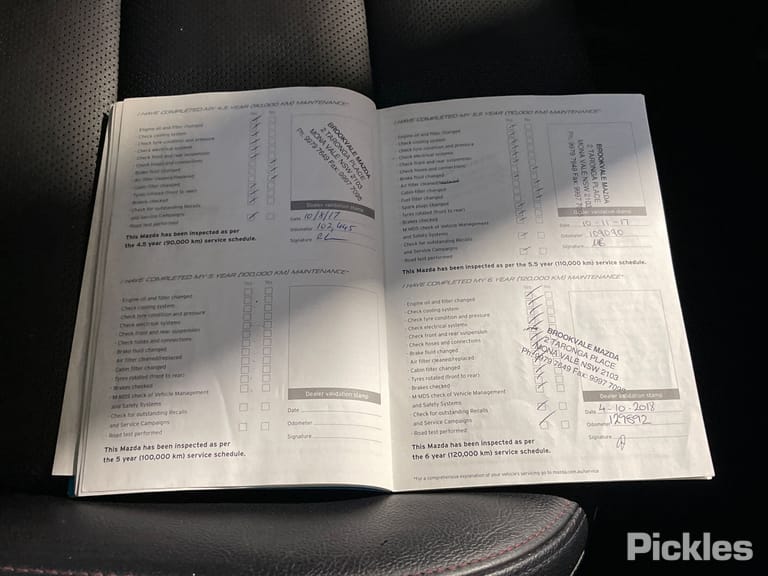 I HAVE COMPLETED MY 4.5 YEAR (90,000 KM) MAINTENANCE*
Yes No
· Engine oil and filter changed
· Check cooling system
· Check tyre condition and pressure
· Check electrical systems
· Check front and rear suspension
· Check hoses and connections
· Brake fluid changed
· Air filter cleaned/replaced
· Cabin filter changed
· Tyres rotated (front to rear)
· Brakes checked
· Check for outstanding Recalls
and Service Campaigns
· Road test performed
This Mazda has been inspected as per
the 4.5 year (90,000 km) service schedule.
BROOKVALE MAZDA
2 TARONGA PLACE
MONA VALE NSW 2103
Ph: 9979 7849 Fax: 9997 7095
Dealer validation stamp
Date 10/8/17
Odometer 102,445
Signature
I HAVE COMPLETED MY 5 YEAR (100,000 KM) MAINTENANCE*
Yes No
· Engine oil and filter changed
· Check cooling system
· Check tyre condition and pressure
· Check electrical systems
· Check front and rear suspension
· Check hoses and connections
· Brake fluid changed
· Air filter cleaned/replaced
· Cabin filter changed
· Tyres rotated (front to rear)
· Brakes checked
· M MDS check of Vehicle Management
and Safety Systems
· Check for outstanding Recalls
and Service Campaigns
· Road test performed
This Mazda has been inspected as per
the 5 year (100,000 km) service schedule.
Dealer validation stamp
Date
Odometer
Signature
I HAVE COMPLETED MY 5.5 YEAR (110,000 KM) MAINTENANCE*
Yes No
· Engine oil and filter changed
· Check cooling system
· Check tyre condition and pressure
· Check electrical systems
· Check front and rear suspension
· Check hoses and connections
· Brake fluid changed
· Air filter cleaned/replaced
· Cabin filter changed
· Fuel filter changed
· Spark plugs changed
· Tyres rotated (front to rear)
· Brakes checked
· M MDS check of Vehicle Management
and Safety Systems
· Check for outstanding Recalls
and Service Campaigns
· Road test performed
This Mazda has been inspected as per the 5.5 year (110,000 km) service schedule.
BROOKVALE MAZDA
2 TARONGA PLACE
MONA VALE NSW 2103
Ph: 9979 7849 Fax: 9997
Dealer validation stamp
Date 10-11-17
Odometer 109090
Signature
I HAVE COMPLETED MY 6 YEAR (120,000 KM) MAINTENANCE*
Yes No
· Engine oil and filter changed
· Check cooling system
· Check tyre condition and pressure
· Check electrical systems
· Check front and rear suspension
· Check hoses and connections
· Brake fluid changed
· Air filter cleaned/replaced
· Cabin filter changed
· Tyres rotated (front to rear)
· Brakes checked
· M MDS check of Vehicle Management
and Safety Systems
· Check for outstanding Recalls
and Service Campaigns
· Road test performed
This Mazda has been inspected as per
the 6 year (120,000 km) service schedule.
BROOKVALE MAZDA
2 TARONGA PLACE
MONA VALE NSW 2103
Ph: 9979 7849 Fax: 9997 7095
Dealer validation stamp
Date 4-10-2018
Odometer 129892
Signature
*For a comprehensive explanation of your vehicle's servicing go to mazda.com.au/service
Pickles